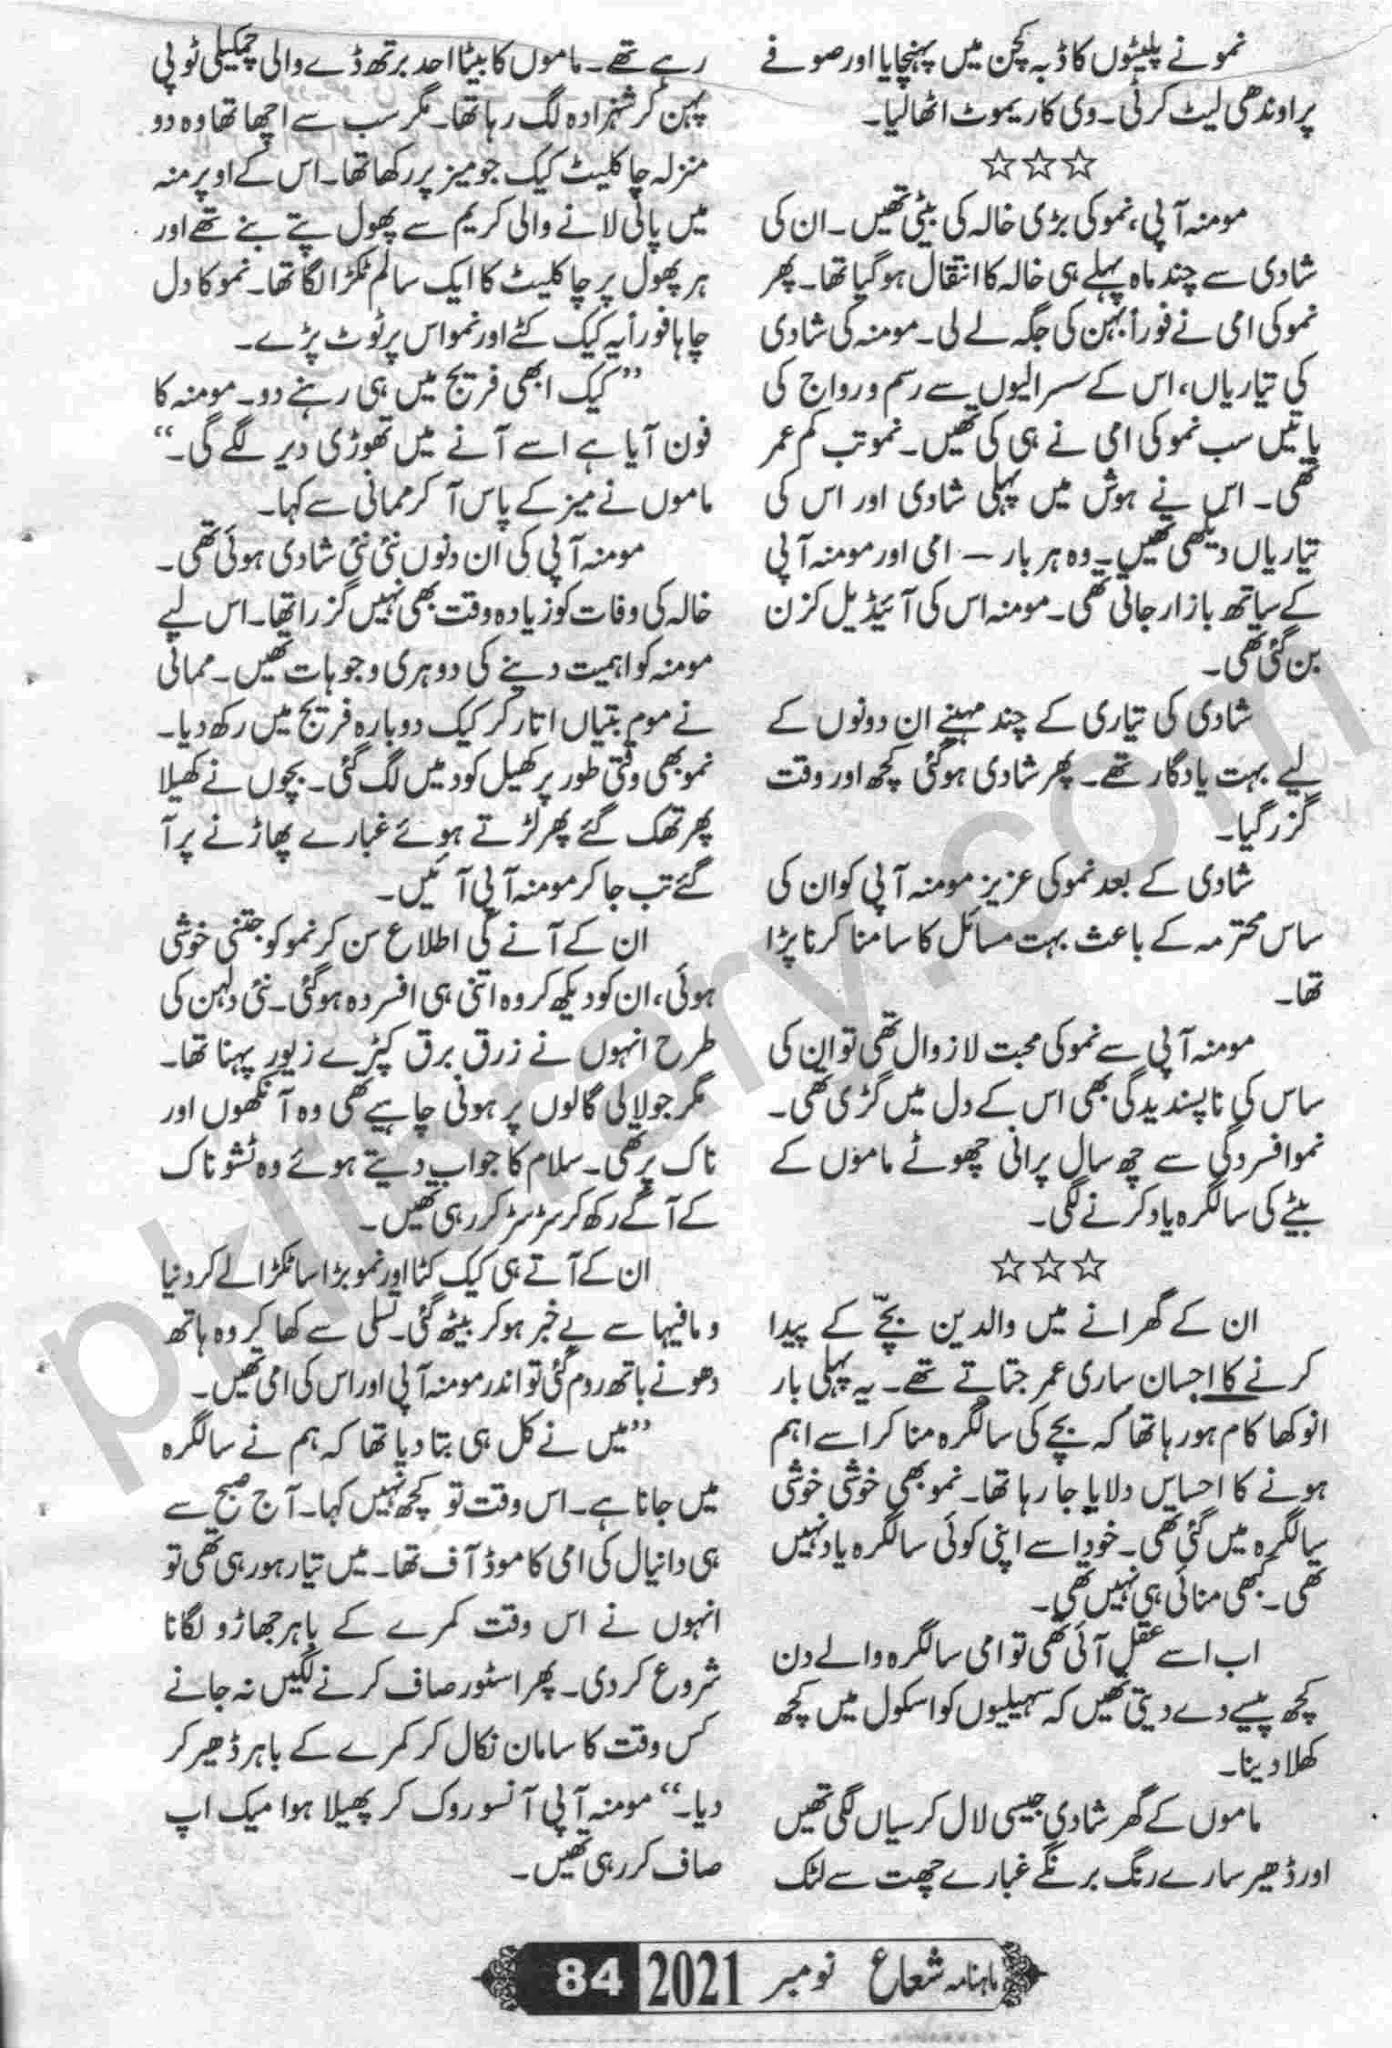 نمو نے پلیٹوں کا ڈبہ کچن میں پہنچایا اور صوفے
پر اوندھی لیٹ کر ٹی۔ وی کا ریموٹ اٹھا لیا۔
☆☆☆
مومنہ آپی، نمو کی بڑی خالہ کی بیٹی تھیں۔ ان کی
شادی سے چند ماہ پہلے ہی خالہ کا انتقال ہو گیا تھا۔ پھر
نمو کی امی نے فوراً بہن کی جگہ لے لی۔ مومنہ کی شادی
کی تیاریاں، اس کے سسرالیوں سے رسم و رواج کی
باتیں سب نمو کی امی نے ہی کی تھیں۔ نمو تب کم عمر
تھی۔ اس نے ہوش میں پہلی شادی اور اس کی
تیاریاں دیکھی تھیں۔ وہ ہر بار — امی اور مومنہ آپی
کے ساتھ بازار جاتی تھی۔ مومنہ اس کی آئیڈیل کزن
بن گئی تھی۔
شادی کی تیاری کے چند مہینے ان دونوں کے
لیے بہت یادگار تھے۔ پھر شادی ہو گئی کچھ اور وقت
گزر گیا۔
شادی کے بعد نمو کی عزیز مومنہ آپی کو ان کی
ساس محترمہ کے باعث بہت مسائل کا سامنا کرنا پڑا
تھا۔
مومنہ آپی سے نمو کی محبت لازوال تھی تو ان کی
ساس کی ناپسندیدگی بھی اس کے دل میں گڑی تھی۔
نمو افسردگی سے چھ سال پرانی چھوٹے ماموں کے
بیٹے کی سالگرہ یاد کرنے لگی۔
☆☆☆
ان کے گھرانے میں والدین بچّے کے پیدا
کرنے کا احسان ساری عمر جتاتے تھے۔ یہ پہلی بار
انوکھا کام ہو رہا تھا کہ بچے کی سالگرہ منا کر اسے اہم
ہونے کا احساس دلایا جا رہا تھا۔ نمو بھی خوشی خوشی
سالگرہ میں گئی تھی۔ خود اسے اپنی کوئی سالگرہ یاد نہیں
تھی۔ کبھی منائی ہی نہیں تھی۔
اب اسے عقل آئی تھی تو امی سالگرہ والے دن
کچھ پیسے دے دیتی تھیں کہ سہیلیوں کو اسکول میں کچھ
کھلا دینا۔
ماموں کے گھر شادی جیسی لال کرسیاں لگی تھیں
اور ڈھیر سارے رنگ برنگے غبارے چھت سے لٹک
رہے تھے۔ ماموں کا بیٹا احد برتھ ڈے والی چمکیلی ٹوپی
پہن کر شہزادہ لگ رہا تھا۔ مگر سب سے اچھا تھا وہ دو
منزلہ چاکلیٹ کیک جو میز پر رکھا تھا۔ اس کے اوپر منہ
میں پانی لانے والی کریم سے پھول پتے بنے تھے اور
ہر پھول پر چاکلیٹ کا ایک سالم ٹکڑا لگا تھا۔ نمو کا دل
چاہا فوراً یہ کیک کٹے اور نمو اس پر ٹوٹ پڑے۔
”کیک ابھی فریج میں ہی رہنے دو۔ مومنہ کا
فون آیا ہے اسے آنے میں تھوڑی دیر لگے گی۔“
ماموں نے میز کے پاس آ کر ممانی سے کہا۔
مومنہ آپی کی ان دنوں نئی نئی شادی ہوئی تھی۔
خالہ کی وفات کو زیادہ وقت بھی نہیں گزرا تھا۔ اس لیے
مومنہ کو اہمیت دینے کی دوہری وجوہات تھیں۔ ممانی
نے موم بتیاں اتار کر کیک دوبارہ فریج میں رکھ دیا۔
نمو بھی وقتی طور پر کھیل کود میں لگ گئی۔ بچوں نے کھیلا
پھر تھک گئے پھر لڑتے ہوئے غبارے پھاڑنے پر آ
گئے تب جا کر مومنہ آپی آئیں۔
ان کے آنے کی اطلاع سن کر نمو کو جتنی خوشی
ہوئی، ان کو دیکھ کر وہ اتنی ہی افسردہ ہو گئی۔ نئی دلہن کی
طرح انہوں نے زرق برق کپڑے زیور پہنا تھا۔
مگر جو لالی گالوں پر ہونی چاہیے تھی وہ آنکھوں اور
ناک پر تھی۔ سلام کا جواب دیتے ہوئے وہ ٹشو ناک
کے آگے رکھ کر سڑ سڑ کر رہی تھیں۔
ان کے آتے ہی کیک کٹا اور نمو بڑا سا ٹکڑا لے کر دنیا
و مافیہا سے بے خبر ہو کر بیٹھ گئی۔ تسلی سے کھا کر وہ ہاتھ
دھونے باتھ روم گئی تو اندر مومنہ آپی اور اس کی امی تھیں۔
”میں نے کل ہی بتا دیا تھا کہ ہم نے سالگرہ
میں جانا ہے۔ اس وقت تو کچھ نہیں کہا۔ آج صبح سے
ہی دانیال کی امی کا موڈ آف تھا۔ میں تیار ہو رہی تھی تو
انہوں نے اس وقت کمرے کے باہر جھاڑو لگانا
شروع کر دی۔ پھر اسٹور صاف کرنے لگیں نہ جانے
کس وقت کا سامان نکال کر کمرے کے باہر ڈھیر کر
دیا۔“ مومنہ آپی آنسو روک کر پھیلا ہوا میک اپ
صاف کر رہی تھیں۔
ماہنامہ شعاع نومبر 2021 84
pklibrary.com